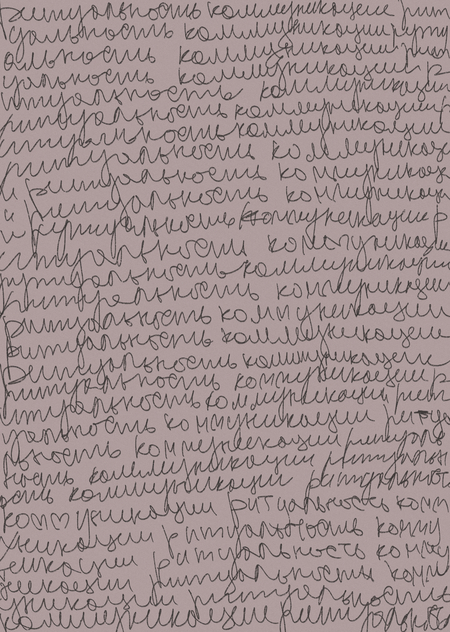 ритуальность коммуникации рит
уальность коммуникации риту
альность коммуникации риту
уальность коммуникации р
итуальность коммуникации
ритуальность коммуникации
ритуальность коммуникации
ритуальность коммуникац
и ритуальность коммуникац
и ритуальность коммуникац
и ритуальность коммуникации р
итуальность коммуникац
ритуальность коммуникации
ритуальность коммуникации
ритуальность коммуникации
ритуальность коммуникации
ритуальность коммуникации
ритуальность коммуникации р
итуальность коммуникации рит
уальность коммуникации ритуа
льность коммуникации ритуаль
ность коммуникации ритуальн
ость коммуникации ритуальност
коммуникации ритуальность комм
уникации ритуальность комму
никации ритуальность комму
никации ритуальность комм
уникации ритуальность
коммуникации ритуальность